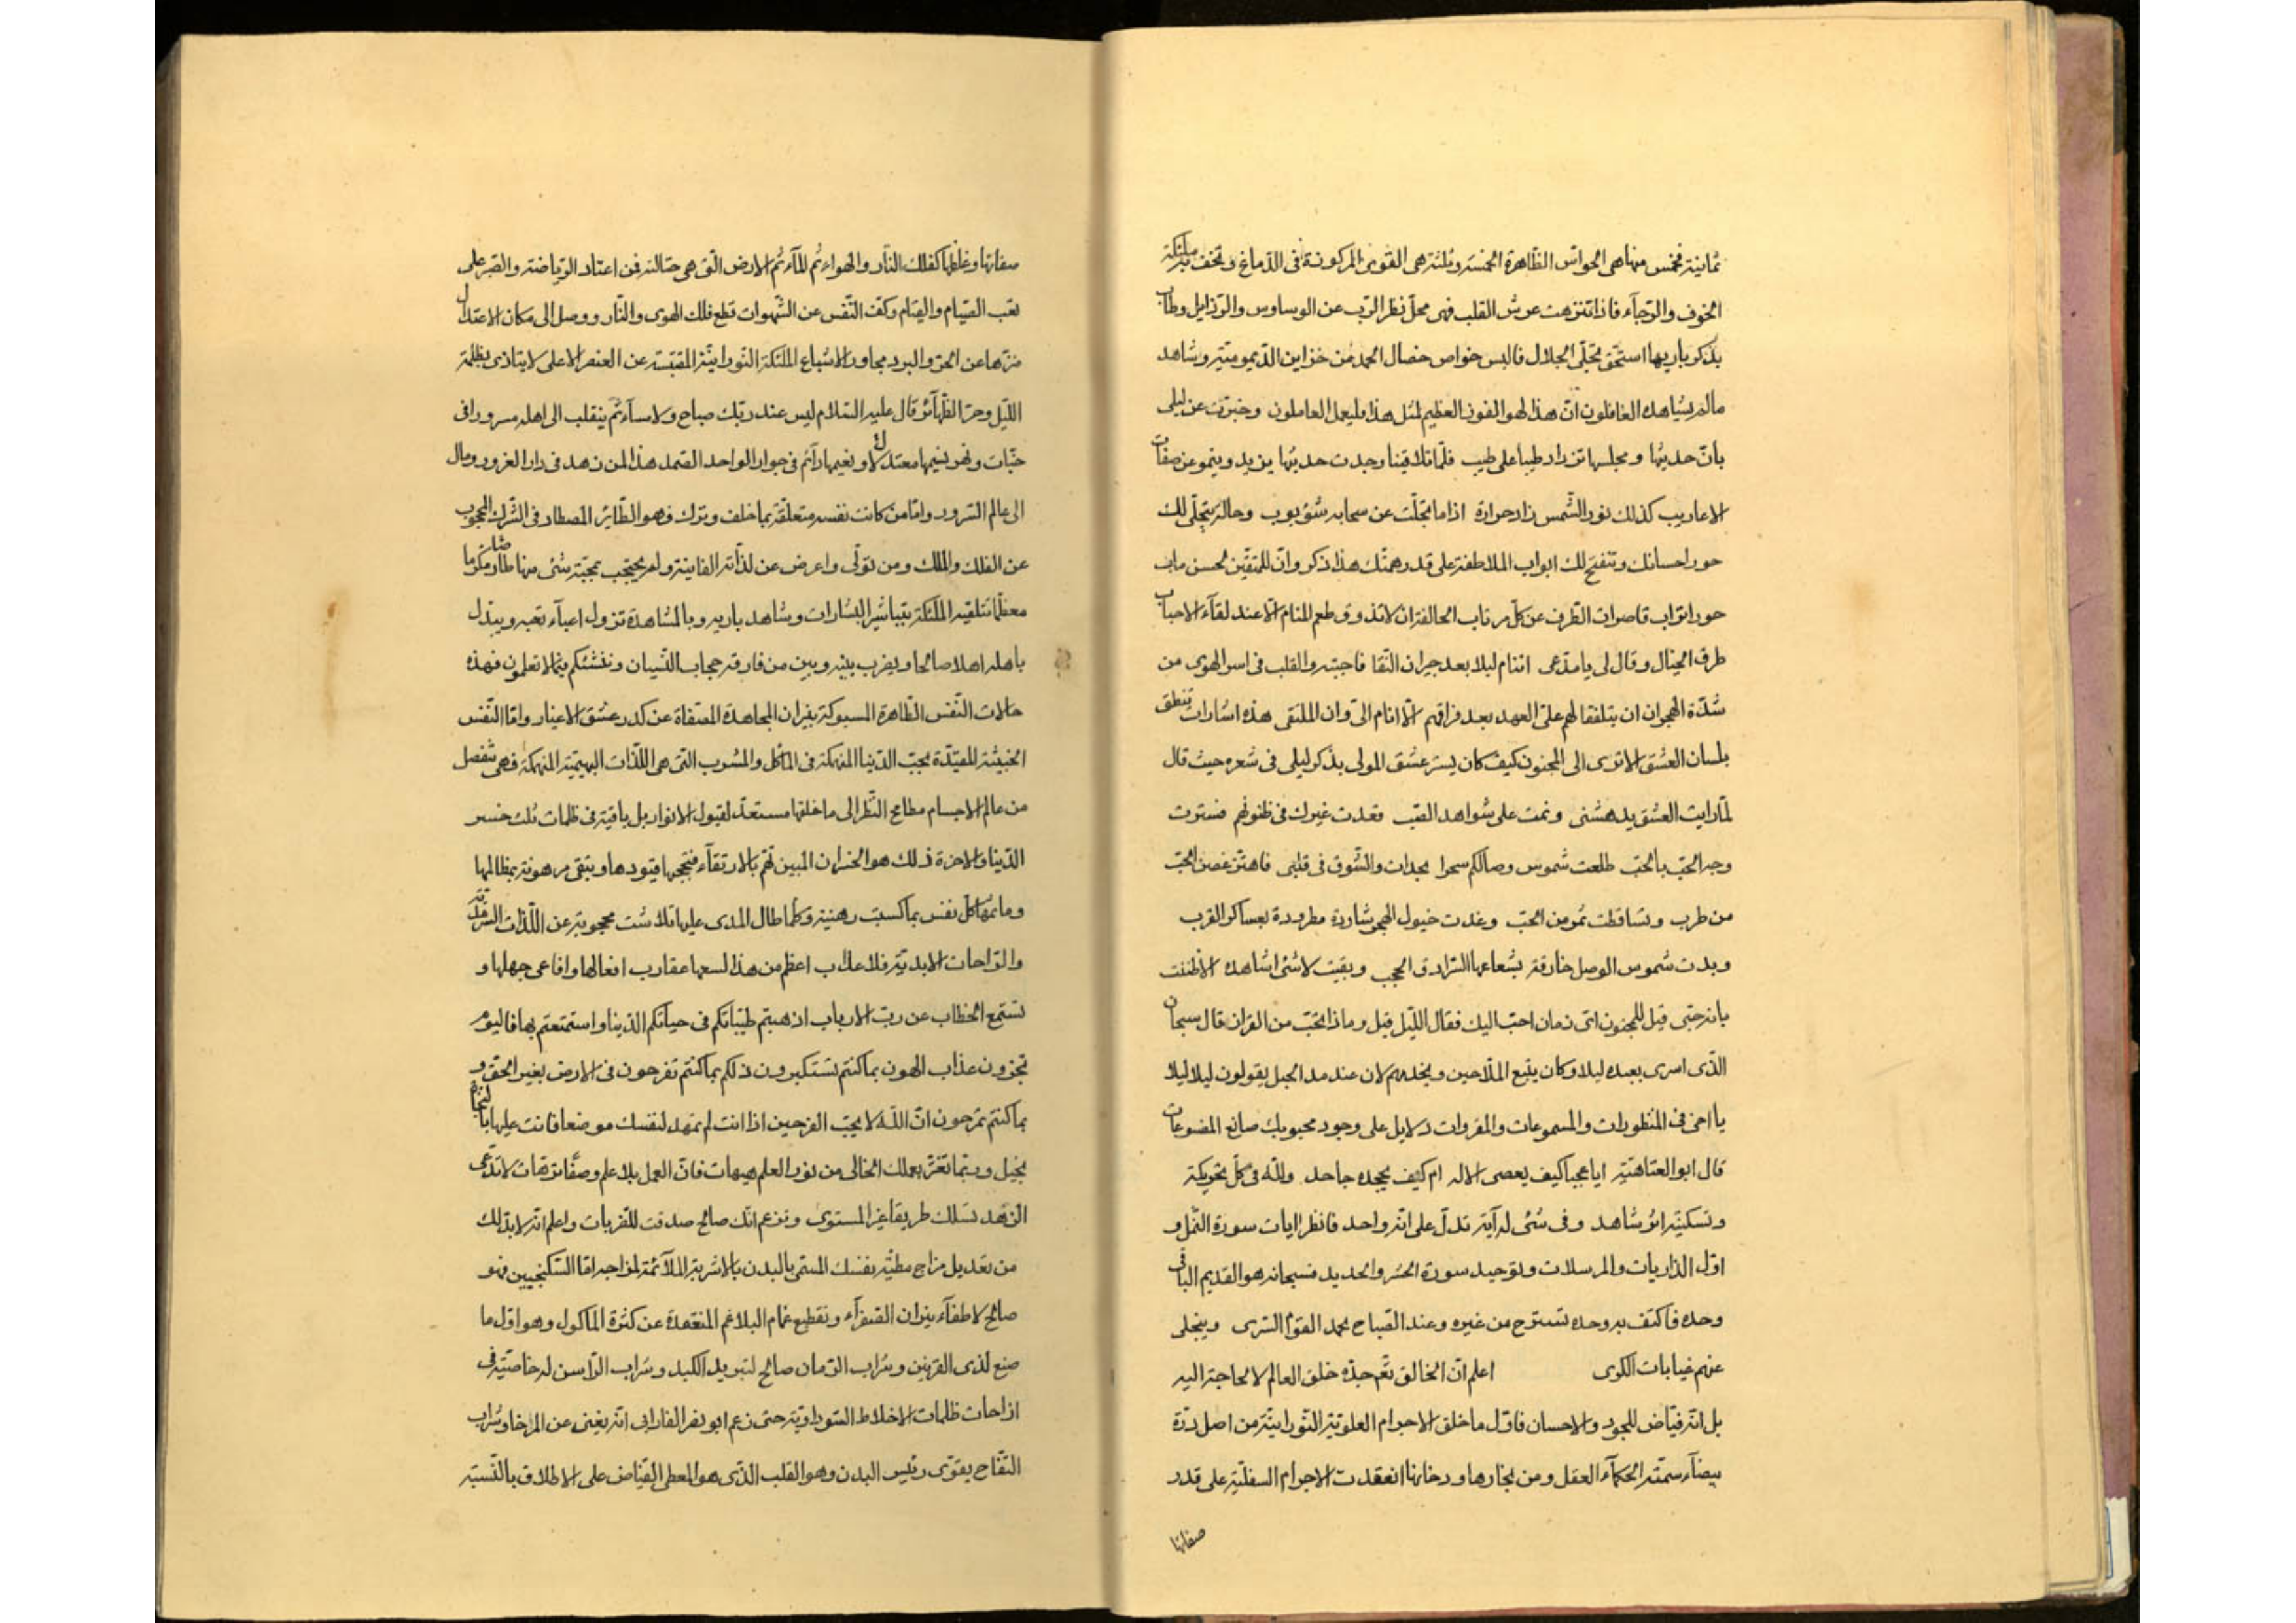 ثمانية فخمس منها هى الحواس الظاهرة الخمسة وثلثة هى القوى المركونة فى الدماغ وتحف بملئكة
الخوف والرجآء فاذا تنزهت عرش القلب فهى محل نظر الرب عن الوساوس والرذايل وطاب
بذكر باريها استحق تجلى الجلال فالبس خواص خصال الحمد من خزاين الديمومية وشاهد
مالم يشاهده الغافلون ان هذا لهو الفوز العظيم لمثل هذا فليعمل العاملون وخبرت عن ليلى
بان حديثها ومجلسها تزداد طيبا على طيب فلما تلاقينا وجدت حديثها يزيد وينمو عن صفات
الاعاريب كذلك نور الشمس زاد حرارة اذا ما تجلت عن سحابه شؤبوب وحاله يتجلى لك
حور احسانك وتنفتح لك ابواب الملاطفة على قدر همتك هذا ذكر وان للمتقين لحسن ماب
حور اتراب قاصرات الطرف عن كل مرتاب الحالفة ان لا تذوق طعم المنام الا عند لقآء الاحباب
طرف الخيال وقال لى يا مدعى اتنام ليلا بعد جيران النقا فاجبته والقلب فى اسر الهوى من
شدة الهجران ان يتلفقا لهم على العهد بعد فراقهم الا انام الى وان الملتقى هذه اشارات تنطق
بلسان العشق الا ترى الى المجنون كيف كان يستر عشق المولى بذكر ليلى فى شعره حيث قال
لما رايت العشق يدهشنى ونمت على شواهد الصب تعدت غيرك فى ظنونهم فسترت
وجه الحب بالحب طلعت شموس وصالكم سحرا بجدات والشوق فى قلبى فاهتز غصن الحب
من طرب وتساقطت ثمر من الحب وغدت خيول الهجر شاردة مطرودة بعساكر القرب
وبدت شموس الوصل خارقة بشعاعها السرادق الحجب وبقيت لا شئ اشاهده الا ظننت
بانه حبى قيل للمجنون اى زمان احب اليك فقال الليل قيل وماذا تحب من القران قال سبحان
الذى اسرى بعبده ليلا وكان يتبع الملاحين ويخدمهم لان عند مد الحبل يقولون ليلا ليلا
يا اخى فى المنظورات والمسموعات والمقروات دلايل على وجود محبوبك صانع المصنوعات
قال ابو العتاهية ايا عجبا كيف يعصى الاله ام كيف يجحده جاحد ولله فى كل تحريكة
وتسكينة اثر شاهد وفى شئ له آية تدل على انه واحد فانظر ايات سورة النمل و
اول الذاريات والمرسلات وتوحيد سورة الحشر والحديد فسبحانه هو القديم الباقى
وحده فاكتف به وحده تسترح من غيره وعند الصباح يحمد القوم السرى وينجلى
عنهم غيابات الكرى اعلم ان الخالق تعم جده خلق العالم لا لحاجة اليه
بل انه فياض للجود والاحسان فاول ما خلق الاجرام العلوية النورانية من اصل درة
بيضآء سمته الحكمآء العقل ومن بخارها ودخانها انعقدت الاجرام السفلية على قدر
صفائها
صفائها وغلظها كفلك النار والهواء ثم المآء ثم الارض التى هى حثالته فمن اعتاد الرياضة والصبر على
تعب الصيام والقيام وكف النفس عن الشهوات قطع فلك الهوى والنار ووصل الى مكان الاعتدال
منزها عن الحر والبرد مجاور الاشباع الملئكة النورانية المقتبسة عن العنصر الاعلى لا يتاذى بظلمة
الليل وحر الظهآئر قال عليه السلام ليس عند ربك صباح ولا مسآء ثم ينقلب الى اهله مسرورا فى
جنات ونهر نسيمها معتدلا ونعيمها دآئم فى جوار الواحد الصمد هذا لمن زهد فى دار الغرور ومال
الى عالم السرور واما من كانت نفسه متعلقة بما خلف وترك فهو الطائر المصطاد فى الشرك المحجوب
عن الفلك والملك ومن تولى واعرض عن لذاته الفانية ولم يحتجب بمحبة شئ منها طار مكرما
معظما تتلقيه الملئكة بتباشير البشارات وشاهد باريه وبالمشاهدة تزول اعبآء تعبه ويبدل
باهله اهلا صالحا ويضرب بينه وبين من فارقه حجاب النسيان وننشئكم فيما لا تعلمون فهذه
حالات النفس الطاهرة المسبوكة بنيران المجاهدة المصفاة عن كدر عشق الاغيار واما النفس
الخبيثة المقيدة بحب الدنيا المنهمكة فى المأكل والمشرب التى هى اللذات البهيمية المنهمكة فهى تنفصل
من عالم الاجسام مطامح النظر الى ما خلفها مستعد لقبول الانوار بل باقية فى ظلمات تلك خسر
الدنيا والاخرة ذلك هو الخسران المبين تهم بالارتقآء فتحجبها قيودها وتبقى مرهونة بمظالمها
وماثمها كل نفس بما كسبت رهينة وكلما طال المدى عليها تلاشت محجوبة عن اللذات السرمدية
والراحات الابدية فلا عذاب اعظم من هذا لسعها عقارب افعالها وافاعى جهلها و
تستمع الخطاب عن رب الارباب اذهبتم طيباتكم فى حياتكم الدنيا واستمتعتم بها فاليوم
تجزون عذاب الهون بما كنتم تستكبرون ذلكم بما كنتم تفرحون فى الارض بغير الحق و
بما كنتم تمرحون ان الله لا يحب الفرحين اذا انت لم تمهد لنفسك موضعا فانت عليها بالنجاة
بخيل وربما تغتر بعملك الخالى من نور العلم هيهات فان العمل بلا علم وصفا ترهات لا تدعى
الزهد تسلك طريقا غير المستوى وتزعم انك صالح صدقت للقربات واعلم انه لا بد لك
من تعديل مزاج مطية نفسك المسمى بالبدن بالاشربة الملآئمة لمزاجه اما السكنجبين فهو
صالح لاطفآء نيران الصفرآء وتقطيع غمام البلاغم المنعقدة عن كثرة المأكول وهو اول ما
صنع لذى القرنين وشراب الرمان صالح لتبريد الكبد وشراب الراسن له خاصية فى
ازاحات ظلمات الاخلاط السوداوية حتى زعم ابو نصر الفارابى انه يغنى عن المرخا وشراب
التفاح يقوى رئيس البدن وهو القلب الذى هو المعطى الفياض على الاطلاق بالنسبة